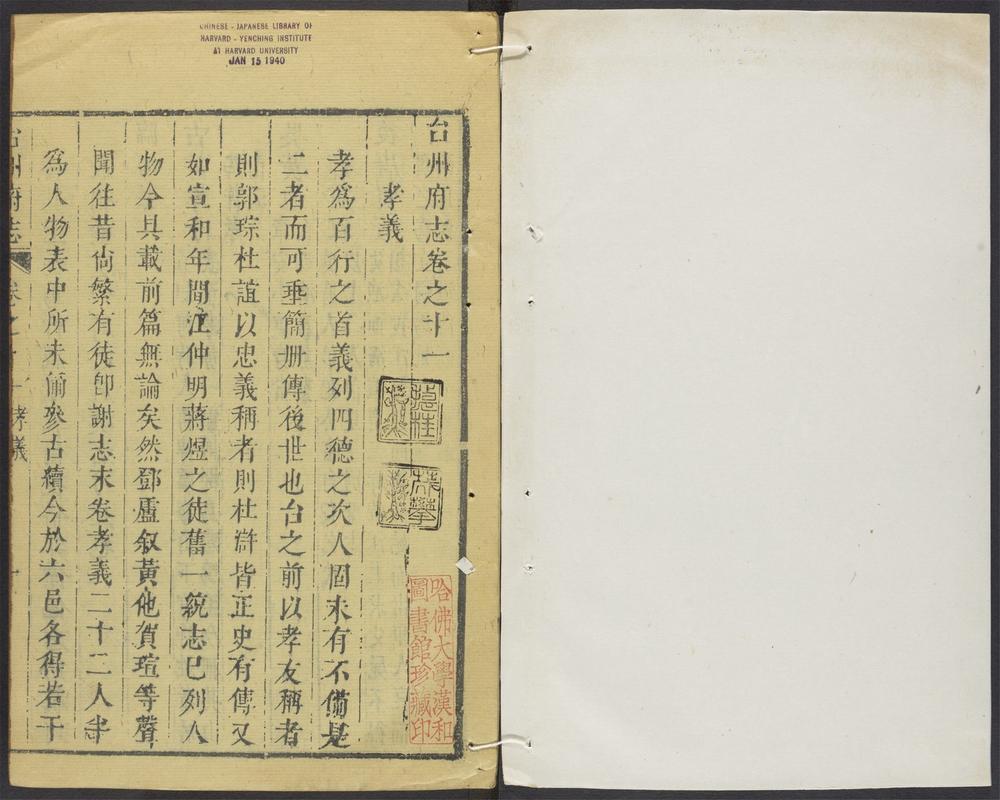 CHINESE - JAPANESE LIBRARY OF
HARVARD - YENCHING INSTITUTE
AT HARVARD UNIVERSITY
JAN 15 1940
台州府志卷之十一
孝義
孝爲百行之首義列四德之次人固未有不備是
二者而可垂簡册傳後世也台之前以孝友稱者
則郭琮杜誼以忠義稱者則杜滸皆正史有傳又
如宣和年間江仲明蔣煜之徒舊一統志已列人
物今具載前篇無論矣然鄧盧叙黃他賀瑄等聲
聞往昔尙繁有徒卽謝志末卷孝義二十二人半
爲人物表中所未備參古續今於六邑各得若干
哈佛大學漢和
圖書館珍藏印
台州府志
卷之十一
孝義
一